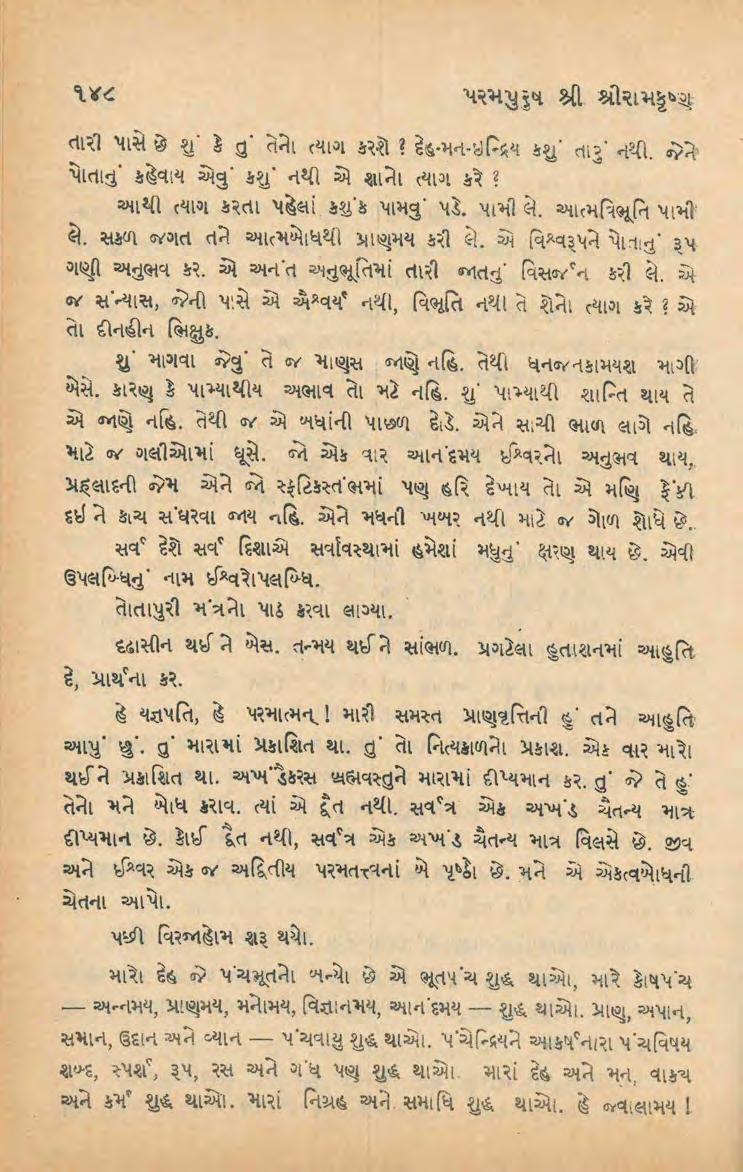 ૧૪૮ પરમપુરુષ શ્રી શ્રીરામકૃષ્ણ
તારી પાસે છે શું કે તું તેનો ત્યાગ કરશે ? દેહ-મન-ઇન્દ્રિય કશું તારું નથી. જેને
પોતાનું કહેવાય એવું કશું નથી એ શાનો ત્યાગ કરે ?
આથી ત્યાગ કરતા પહેલાં કશુંક પામવું પડે. પામી લે. આત્મવિભૂતિ પામી
લે. સકળ જગત તને આત્મબોધથી પ્રાણમય કરી લે. એ વિશ્વરૂપને પોતાનું રૂપ
ગણી અનુભવ કર. એ અનંત અનુભૂતિમાં તારી જાતનું વિસર્જન કરી લે. એ
જ સંન્યાસ, જેની પાસે એ ઐશ્વર્ય નથી, વિભૂતિ નથી તે શેનો ત્યાગ કરે ? એ
તો દીનહીન ભિક્ષુક.
શું માગવા જેવું તે જ માણસ જાણે નહિ. તેથી ધનજનકામયશ માગી
બેસે. કારણ કે પામ્યાથીય અભાવ તો મટે નહિ. શું પામ્યાથી શાન્તિ થાય તે
એ જાણે નહિ. તેથી જ એ બધાંની પાછળ દોડે. એને સાચી ભાળ લાગે નહિ
માટે જ ગલીઓમાં ઘૂસે. જો એક વાર આનંદમય ઈશ્વરનો અનુભવ થાય,
પ્રહ્લાદની જેમ એને જો સ્ફટિકસ્તંભમાં પણ હરિ દેખાય તો એ મણિ ફેંકી
દઈ ને કાચ સંઘરવા જાય નહિ. એને મધની ખબર નથી માટે જ ગોળ શોધે છે.
સર્વ દેશે સર્વ દિશાએ સર્વાવસ્થામાં હમેશાં મધુનું ક્ષરણ થાય છે. એવી
ઉપલબ્ધિનું નામ ઈશ્વરોપલબ્ધિ.
તોતાપુરી મંત્રનો પાઠ કરવા લાગ્યા.
દૃઢાસીન થઈ ને બેસ. તન્મય થઈ ને સાંભળ. પ્રગટેલા હુતાશનમાં આહુતિ
દે, પ્રાર્થના કર.
હે યજ્ઞપતિ, હે પરમાત્મન્ ! મારી સમસ્ત પ્રાણવૃત્તિની હું તને આહુતિ
આપું છું. તું મારામાં પ્રકાશિત થા. તું તો નિત્યકાળનો પ્રકાશ. એક વાર મારો
થઈ ને પ્રકાશિત થા. અખંડૈકરસ બ્રહ્મવસ્તુને મારામાં દીપ્યમાન કર. તું જે તે હું
તેનો મને બોધ કરાવ. ત્યાં એ દ્વૈત નથી. સર્વત્ર એક અખંડ ચૈતન્ય માત્ર
દીપ્યમાન છે. કોઈ દ્વૈત નથી, સર્વત્ર એક અખંડ ચૈતન્ય માત્ર વિલસે છે. જીવ
અને ઈશ્વર એક જ અદ્વિતીય પરમતત્ત્વનાં બે પૃષ્ઠો છે. મને એ એકત્વબોધની
ચેતના આપો.
પછી વિરજાહોમ શરૂ થયો.
મારો દેહ જે પંચભૂતનો બન્યો છે એ ભૂતપંચ શુદ્ધ થાઓ, મારે કોષપંચ
— અન્નમય, પ્રાણમય, મનોમય, વિજ્ઞાનમય, આનંદમય — શુદ્ધ થાઓ. પ્રાણ, અપાન,
સમાન, ઉદાન અને વ્યાન — પંચવાયુ શુદ્ધ થાઓ. પંચેન્દ્રિયને આકર્ષનારા પંચવિષય
શબ્દ, સ્પર્શ, રૂપ, રસ અને ગંધ પણ શુદ્ધ થાઓ. મારાં દેહ અને મન, વાક્ય
અને કર્મ શુદ્ધ થાઓ. મારાં નિગ્રહ અને સમાધિ શુદ્ધ થાઓ. હે જ્વાલામય !